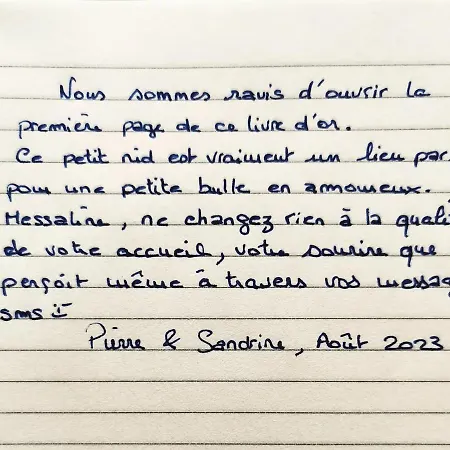 Nous sommes ravis d'ouvrir la
première page de ce livre d'or.
Ce petit nid est vraiment un lieu par
pour une petite bulle en amoureux.
Messaline, ne changez rien à la quali
de votre accueil, votre sourire que
perçoit même à travers vos messag
sms
Pierre & Sandrine, Août 2023